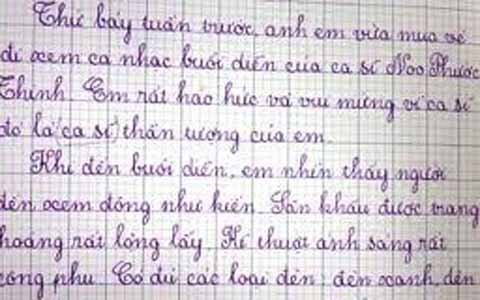 Thứ bảy tuần trước, anh em vừa mua vé
đi xem ca nhạc buổi diễn của ca sĩ Noo Phước
Thịnh. Em rất háo hức và vui mừng vì ca sĩ
đó là ca sĩ thần tượng của em.
Khi đến buổi diễn, em nhìn thấy người
đến xem đông như kiến. Sân khấu được trang
hoàng rất lộng lẫy. Kĩ thuật ánh sáng rất
công phu. Có đủ các loại đèn: đèn xanh, đèn